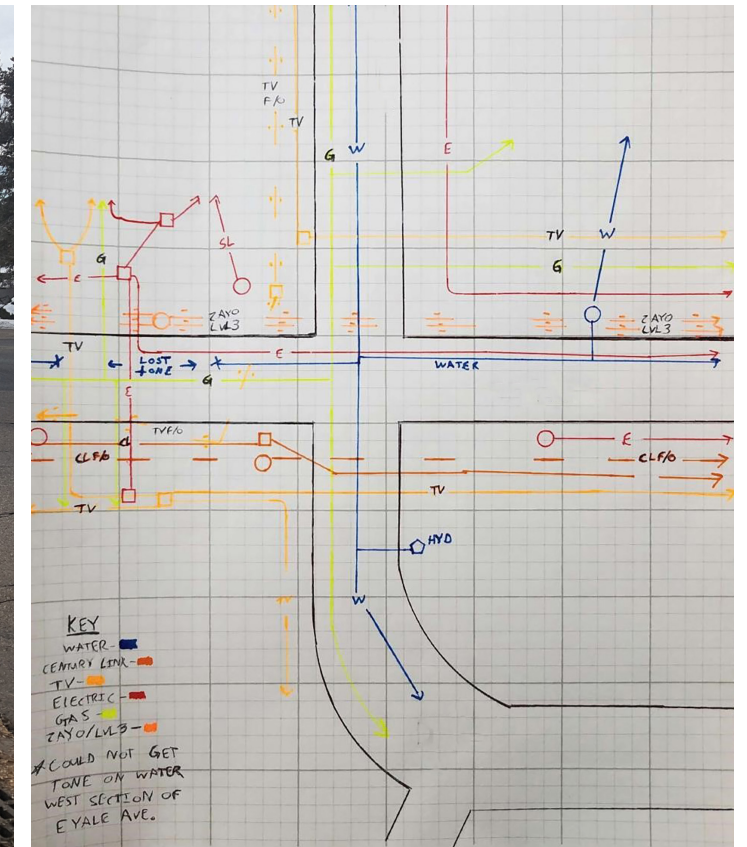 TV
F/O
TV
G
W
E
W
TV
G
SL
G
E
ZAYO
LVL3
ZAYO
LVL3
TV
E
LOST
TONE
WATER
G
E
TVF/O
E
CLF/O
CLF/O
TV
TV
HYD
TV
W
KEY
WATER-
CENTURY LINK-
TV-
ELECTRIC-
GAS-
ZAYO/LVL3-
*COULD NOT GET
TONE ON WATER
WEST SECTION OF
E YALE AVE.